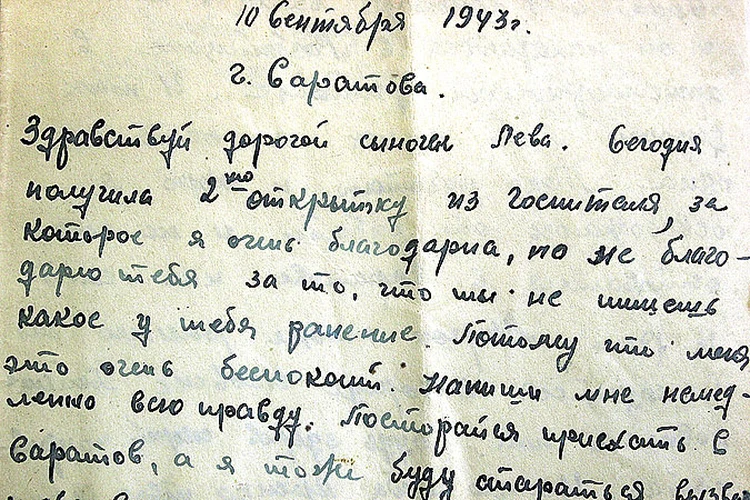 10 Сентября 1943г.
г. Саратова.
Здравствуй дорогой сыночек Лева. Сегодня
получила 2ую открытку из госпиталя, за
которое я очень благодарна, но не благо-
дарю тебя за то, что ты не пишешь
какое у тебя ранение. Потому что меня
это очень беспокоит. Напиши мне немед-
ленно всю правду. Постарайся приехать в
Саратов, а я тоже буду стараться